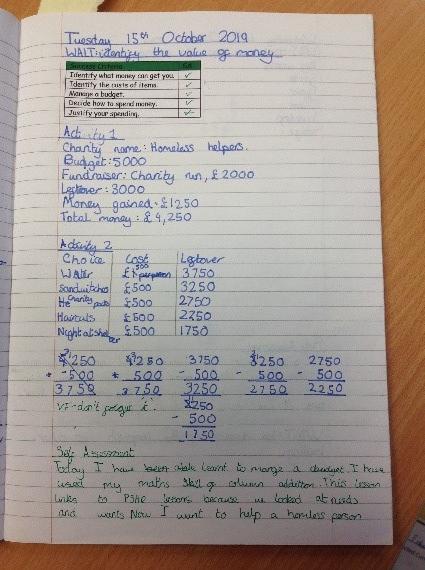 Tuesday 15th October 2019
WALT: identify the value of money.
Success Criteria
Identify what money can get you. ✓
Identify the costs of items. ✓
Manage a budget. ✓
Decide how to spend money. ✓
Justify your spending. ✓
Activity 1
Charity name: Homeless helpers.
Budget: 5000
Fundraiser: Charity run, £2000
Leftover: 3000
Money gained: £1250
Total money: £4,250
Activity 2
Choice Cost Leftover
Water £500 3750
Sandwiches £500 3250
Charity £500 2750
Haircuts £500 2250
Night at shelter £500 1750
4250 4250 3750 3250 2750
- 500 500 - 500 - 500 - 500
3750 3750 3250 2750 2250
VF - don't forget £.
2250
- 500
1750
Self Assessment
Today I have learnt to a budget. I have
used my maths skill of column addition. This lesson
links to PSHE lessons because we looked at needs
and wants. Now I want to help a homless person